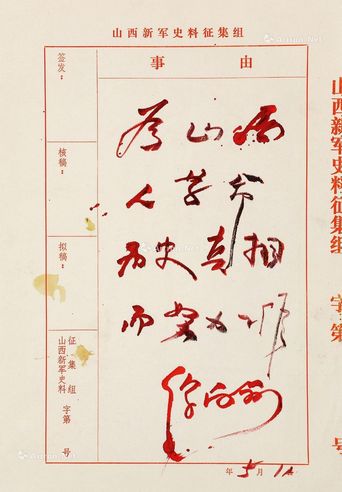 山西新军史料征集组
签发：
事由
为山西
核稿：
人
拟稿：
历史真相
而努力
征集组
山西新军史料
字第 号
年5月1
山西新军史料征集组 字第 号